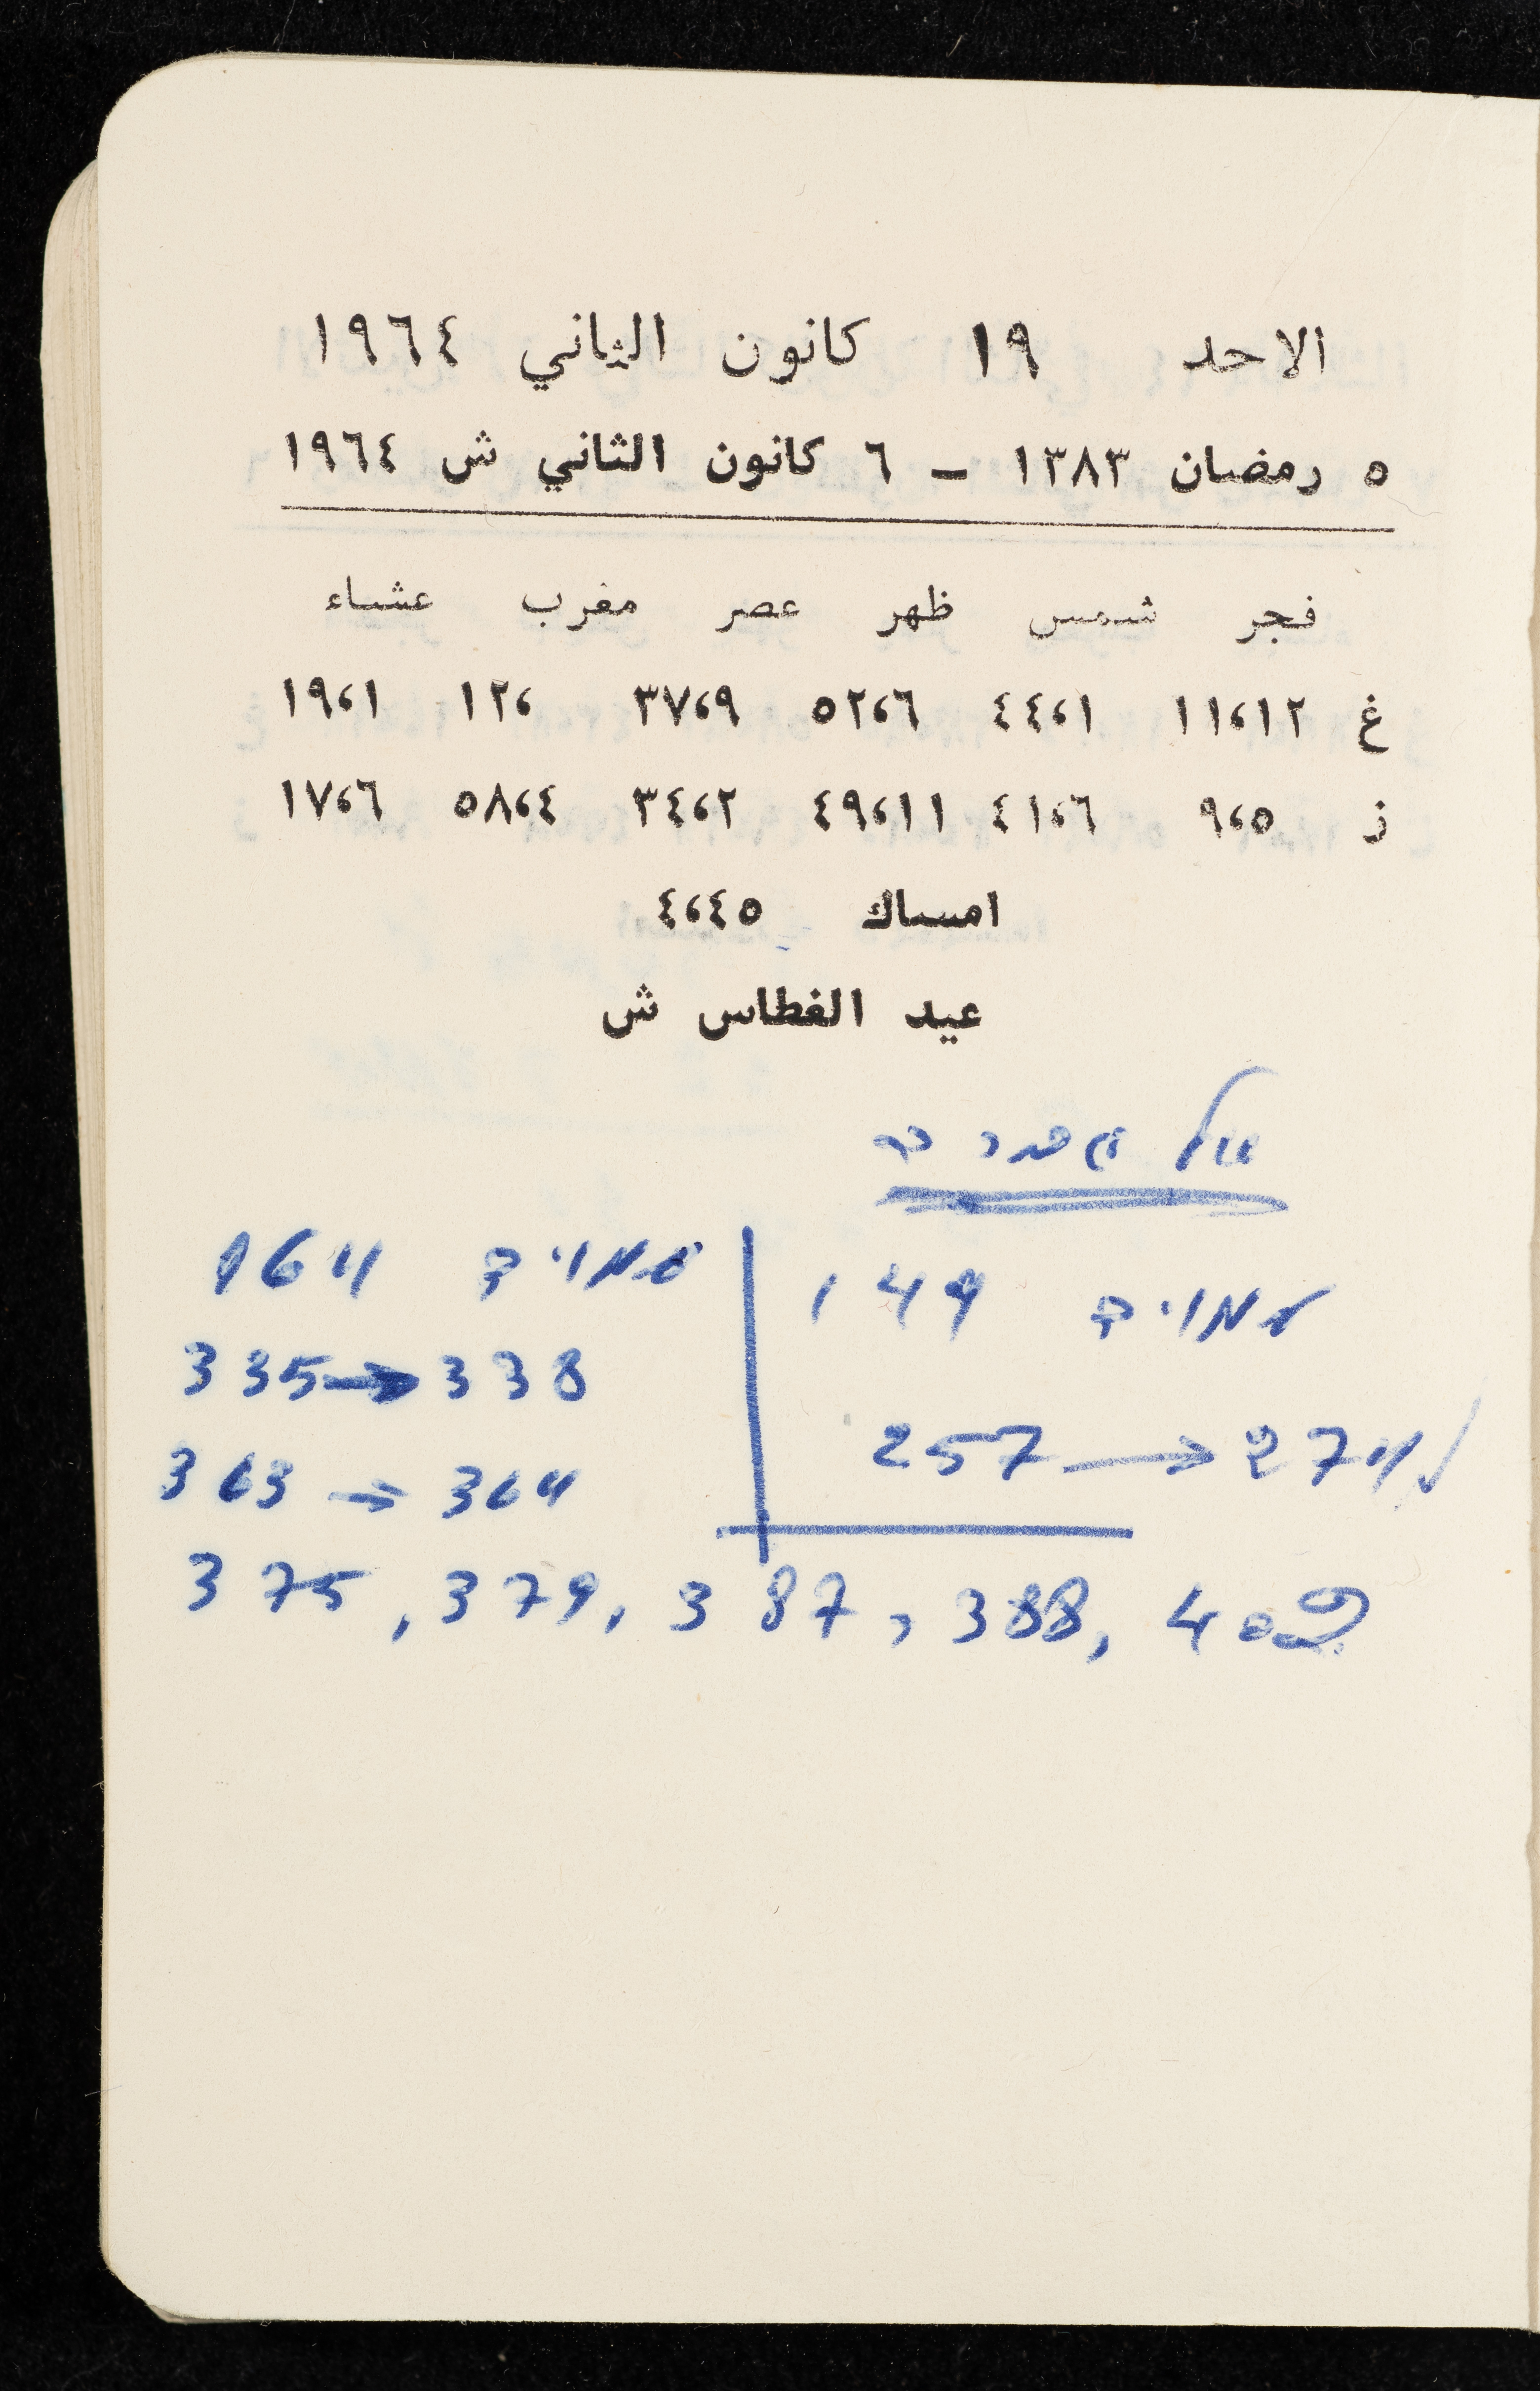 الاحد ١٩ كانون الثاني ١٩٦٤
٥ رمضان ١٣٨٣ – ٦ كانون الثاني ش ١٩٦٤
فجر شمس ظهر عصر مغرب عشاء
غ ١١،١٢ ٤٤،١ ٥٢،٦ ٣٧،٩ ١٢، ١٩،١
ز ٩،٥ ٤١،٦ ٤٩،١١ ٣٤،٢ ٥٨،٤ ١٧،٦
امساك ٤،٤٥
عيد الغطاس ش
149
257 → 274
164
335 → 338
363 → 364
375, 379, 387, 388, 402